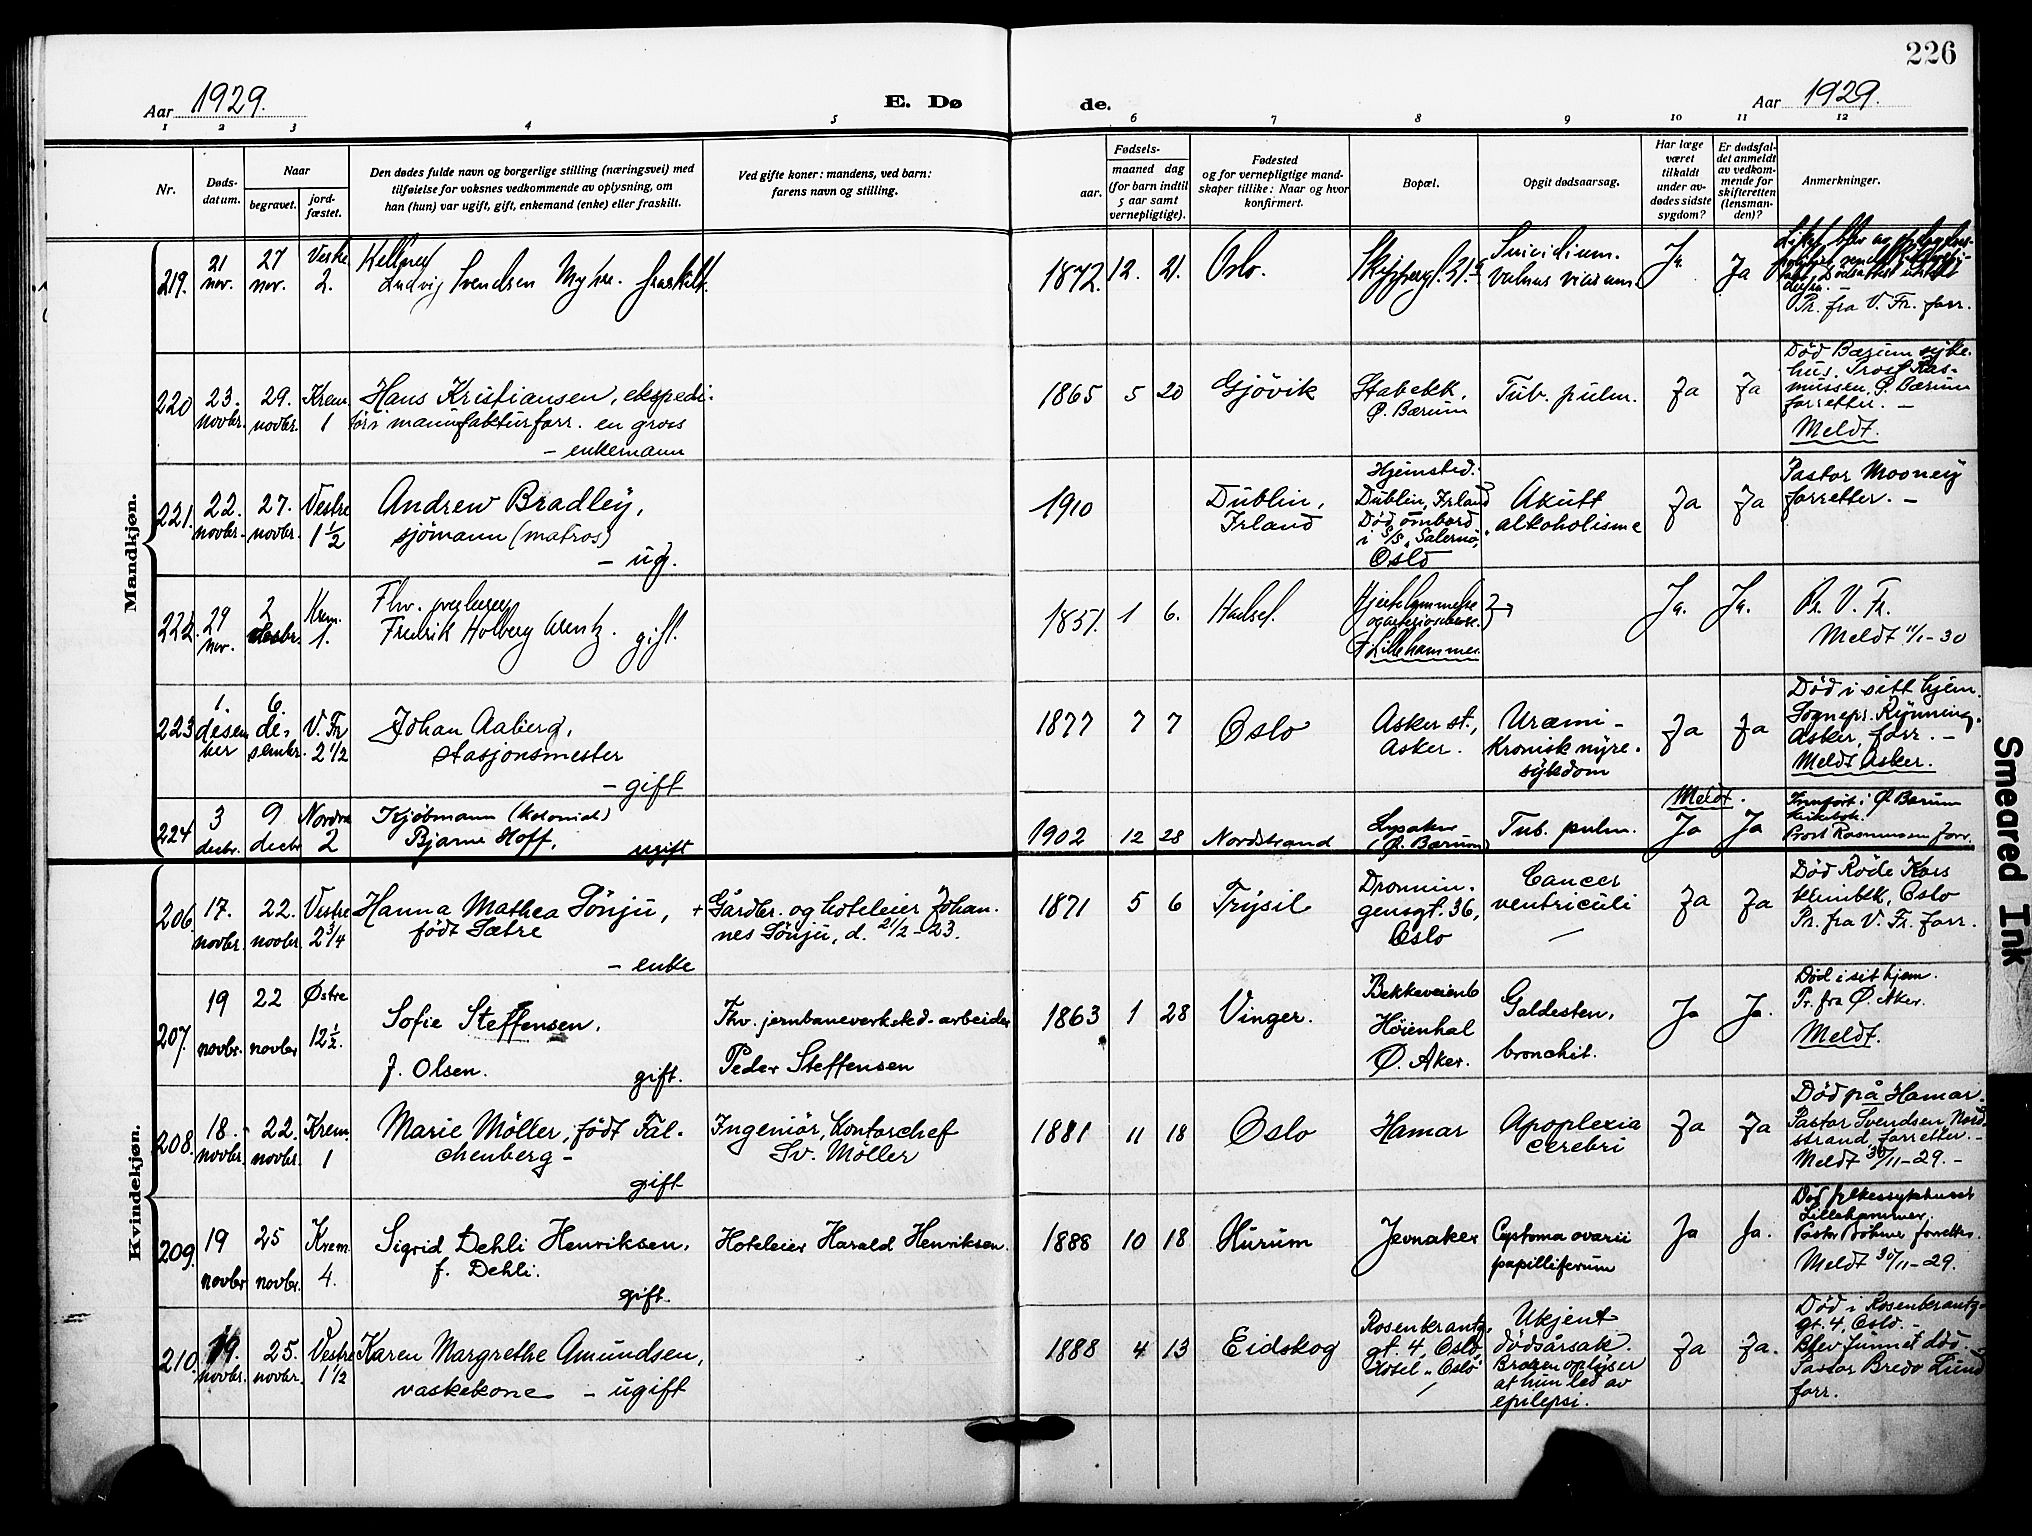 226
Aar 1929.
E. Dø
de.
Aar 1929.
1 2 3 4 5 6 7 8 9 10 11 12
Nr.
Døds-
datum.
Naar
begravet.
jord-
fæstet.
Den dødes fulde navn og borgerlige stilling (næringsvei) med
tilføielse for voksnes vedkommende av oplysning, om
han (hun) var ugift, gift, enkemand (enke) eller fraskilt.
Ved gifte koner: mandens, ved barn:
farens navn og stilling.
Fødsels-
aar.
maaned dag
(for barn indtil
5 aar samt
vernepligtige).
Fødested
og for vernepligtige mand-
skaper tillike: Naar og hvor
konfirmert.
Bopæl.
Opgit dødsaarsag.
Har læge
været
tilkaldt
under av-
dødes sidste
sygdom?
Er dødsfal-
det anmeldt
av vedkom-
mende for
skifteretten
(lensman-
den)?
Anmerkninger.
Mandkjøn.
219.
21
nov.
27
nov.
Vestre
2.
Kellner
Ludvig Svendsen Myhre. fraskilt.
1872. 12. 21.
Oslo.
Skippergt. 21.
Suicidium.
Vulnus
Ja.
Ja
Pr. fra V. Fr. forr.
220
23.
novbr.
29.
novbr.
Krem.
1
Hans Kristiansen, ekspedi-
tør i manufakturforr. en gros
- enkemann
1865 5 20
Gjövik
Stabekk,
Ø. Bærum
Tub. pulm.
Ja
Ja
Död Bærum syke-
hus. Prost Ras-
mussen, Ø. Bærum
forretter. -
Meldt.
221.
22.
novbr.
27.
novbr.
Vestre
1 1/2
Andrew Bradley,
sjömann (matros)
- ug.
1910
Dublin,
Irland
Hjemsted:
Dublin, Irland
Död ombord
i S/S "Salerno",
Oslo
Akutt
alkoholisme
Ja
Ja
Pastor Mooney
forretter. -
222.
29
nov.
2
desbr.
Krem.
1.
Fhv.
Fredrik Holberg Arentz. gift.
1851. 1 6.
Hadsel.
Hjertelammelse
og arteriosklerose.
† Lillehammer
Ja.
Ja.
Pr. V. Fr.
Meldt 11/1-30
223
1.
desem
ber
6.
de-
sembr.
V. Fr
2 1/2
Johan Aaberg,
stasjonsmester
- gift
1877 7 7
Oslo
Asker st.,
Asker.
Uræmi -
Kronisk nyre-
sykdom
Ja
Ja
Död i sitt hjem.
Sognepr. Rynning,
Asker, forr. -
Meldt Asker.
224
3
desbr.
9
desbr
Nordre
2
Kjøbmann (kolonial)
Bjarne Hoff.
ugift
1902 12 28
Nordstrand
Lysaker
(Ø. Bærum)
Tub. pulm.
Meldt.
Ja
Ja
Innført i Ø. Bærum
kirkebok.
Prost Rasmussen forr.
Kvindekjøn.
206
17.
novbr.
22.
novbr.
Vestre
2 3/4
Hanna Mathea Sönju,
född Sætre
- enke
+ Gårdbr. og hoteleier Johan-
nes Sönju, d. 21/2-23.
1871 5 6
Trysil
Dronnin-
gensgt. 36,
Oslo
Cancer
ventriculi
Ja
Ja
Död Röde Kors
klinikk, Oslo
Pr. fra V. Fr. forr.
207.
19
novbr.
22
novbr
Østre
12 1/2.
Sofie Steffensen,
f. Olsen.
gift.
Fhv. jernbaneverksted-arbeider
Peder Steffensen
1863 1 28
Vinger.
Bekkeveien 6
Høienhal
Ø. Aker.
Galdesten,
bronchit.
Ja
Ja.
Död i sit hjem.
Pr. fra Ø. Aker.
Meldt.
208.
18.
novbr.
22.
novbr.
Krem.
1
Marie Möller, född Fal-
chenberg -
gift
Ingeniör, kontorchef
Sv. Möller
1881 11 18
Oslo
Hamar
Apoplexia
cerebri
Ja
Ja
Död på Hamar.
Pastor Svendsen, Nord-
strand, forretter. -
Meldt 30/11-29. -
209.
19
novbr
25
novbr.
Krem.
4.
Sigrid Dehli Henriksen,
f. Dehli.
gift.
Hoteleier Harald Henriksen.
1888 10 18
Hurum
Jevnaker
Cystoma ovarii
papilliferum
Ja
Ja.
Död fylkessykehuset
Lillehammer.
Pastor Böhmer forretter.
Meldt 30/11-29.
210.
19.
novbr.
25.
novbr.
Vestre
1 1/2
Karen Margrethe Amundsen,
vaskekone - ugift
1888 4 13
Eidskog
Rosenkrantz-
gt. 4, Oslo,
Hotel "Oslo"
Ukjent
dödsårsak.
Broren oplyser
at hun led av
epilepsi.
Ja
Ja.
Död i Rosenkrantz-
gt. 4, Oslo. -
Blev funnet död.
Pastor Bredo Lund
forr.
Smeared Ink